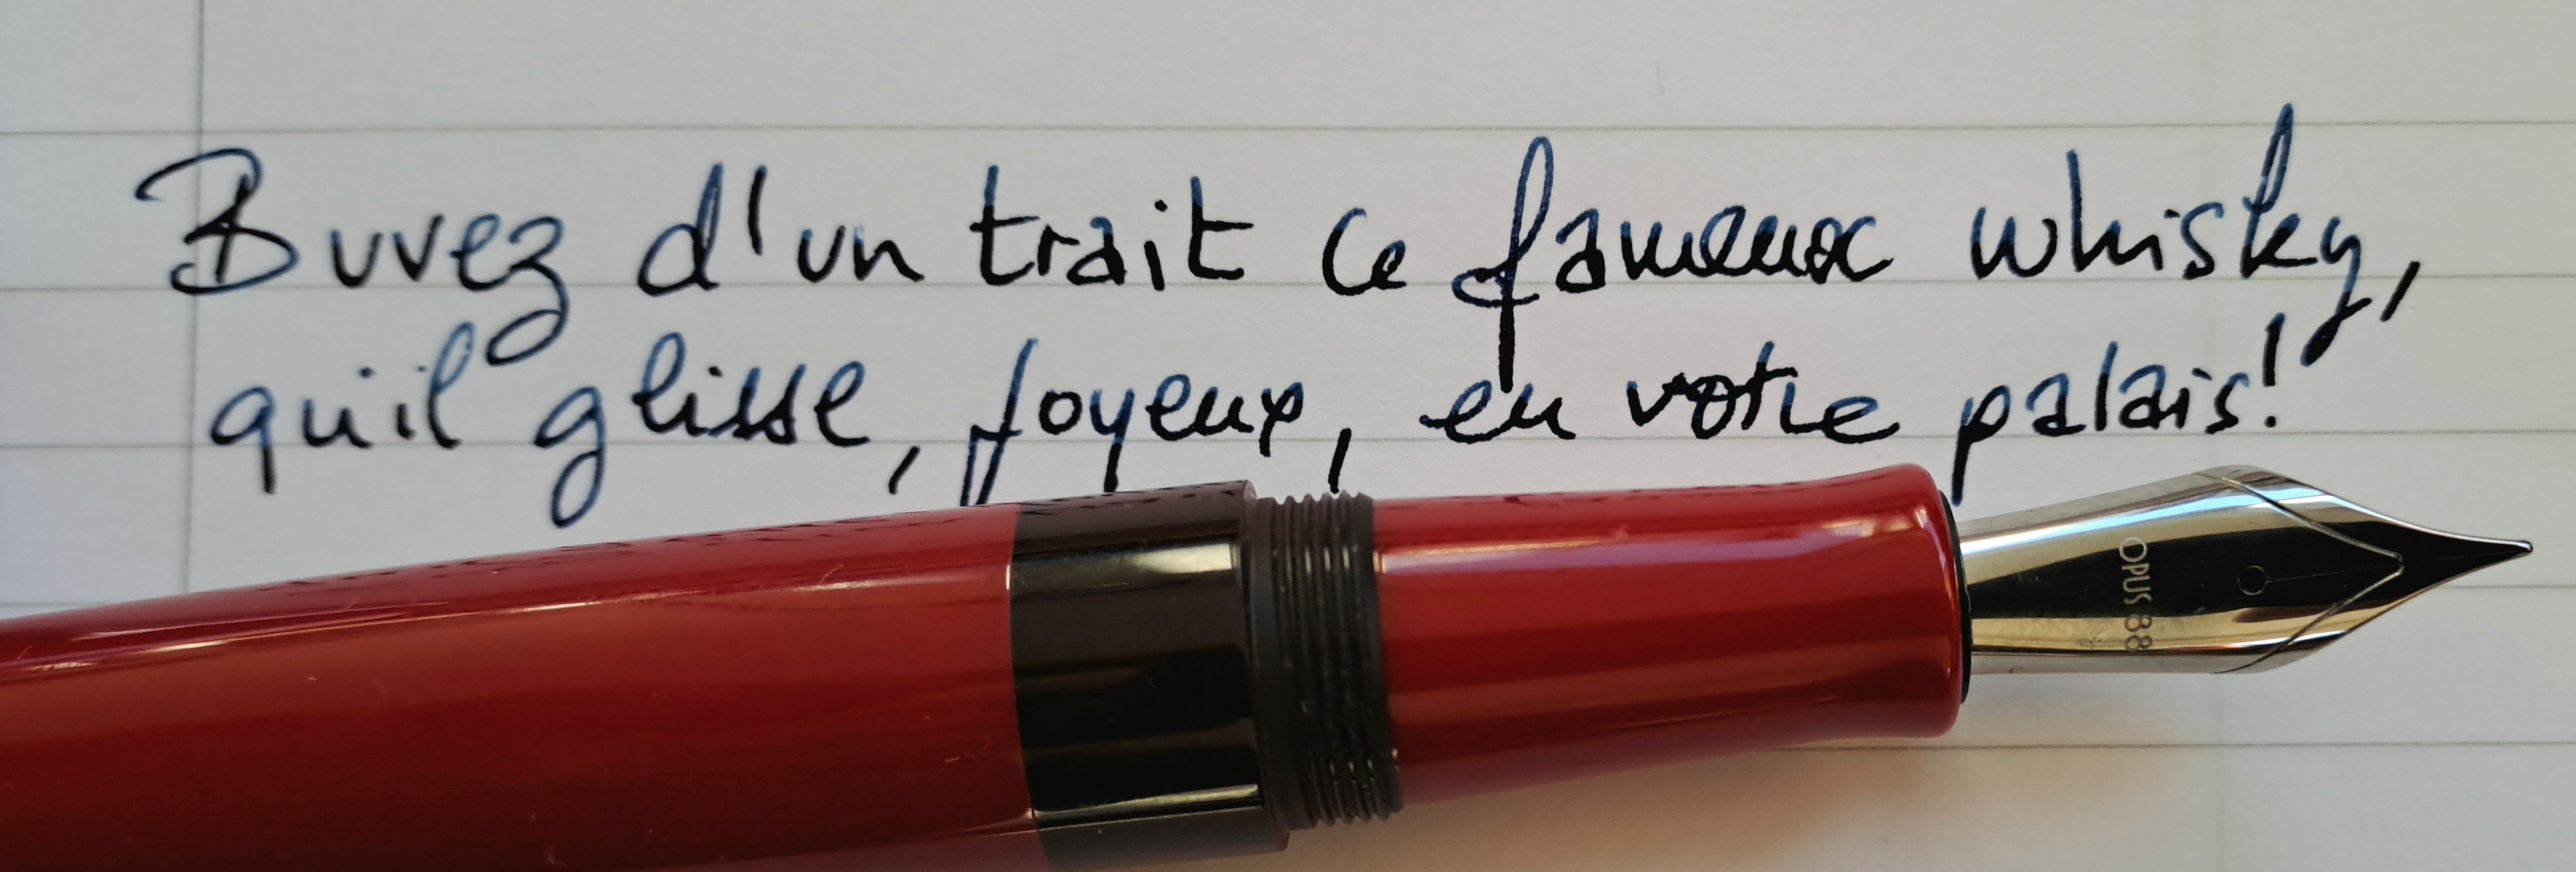 Buvez d'un trait ce fameux whisky,
qu'il glisse, joyeux, en votre palais!
OPUS 88